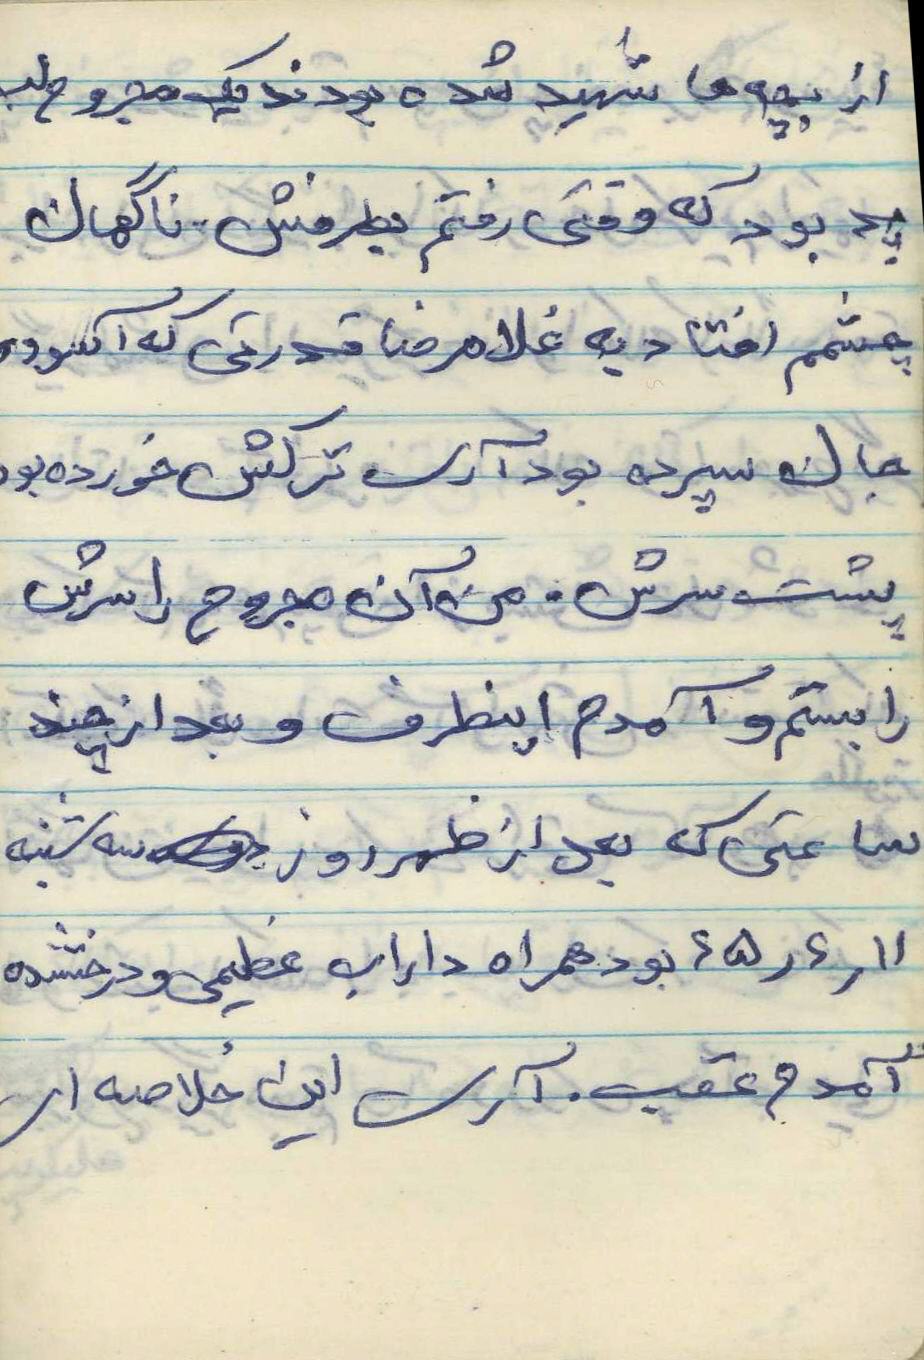 از بچه ها شهید شده بودند یک مجروح لب
پد بود که وقتی رفتم بطرفش. ناگهان
چشمم افتاد به غلامرضا قدرتی که آسوده
جان سپرده بود آری ترکش خورده بود
پشت سرش. من آن مجروح را سرش
را بستم و آمدم اینطرف و بعد از چند
ساعتی که بعد از ظهر روز سه شنبه
۱۱ر۶ر۶۵ بود همراه داراب عظیمی و درخشنده
آمدم عقب. آری این خلاصه ای